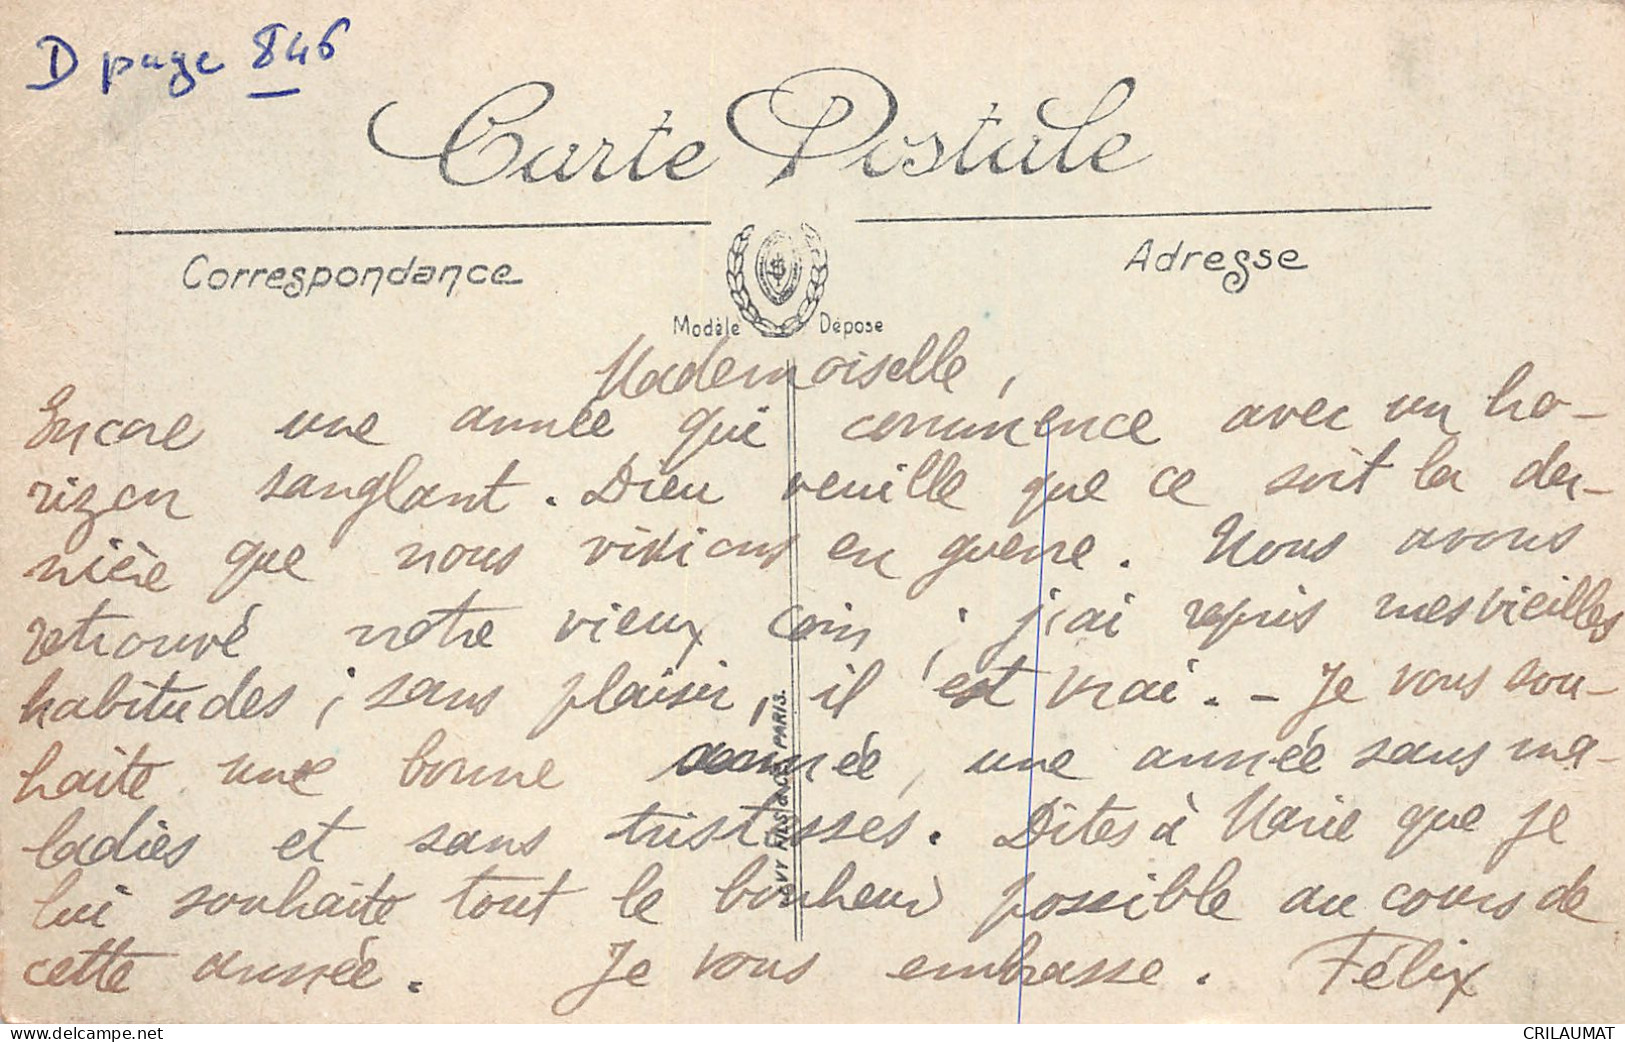 D page 846
Carte Postale
Correspondance
Adresse
Modèle Déposé
LEVY FILS & Cie, PARIS.
Mademoiselle,
Encore une année qui commence avec un ho-
rizon sanglant. Dieu veuille que ce soit la der-
nière que nous vivions en guerre. Nous avons
retrouvé notre vieux coin ; j'ai repris mes vieilles
habitudes ; sans plaisir, il est vrai. - Je vous sou-
haite une bonne année, une année sans ma-
ladies et sans tristesses. Dites à Marie que je
lui souhaite tout le bonheur possible au cours de
cette année. Je vous embrasse. Félix
www.delcampe.net
CRILAUMAT